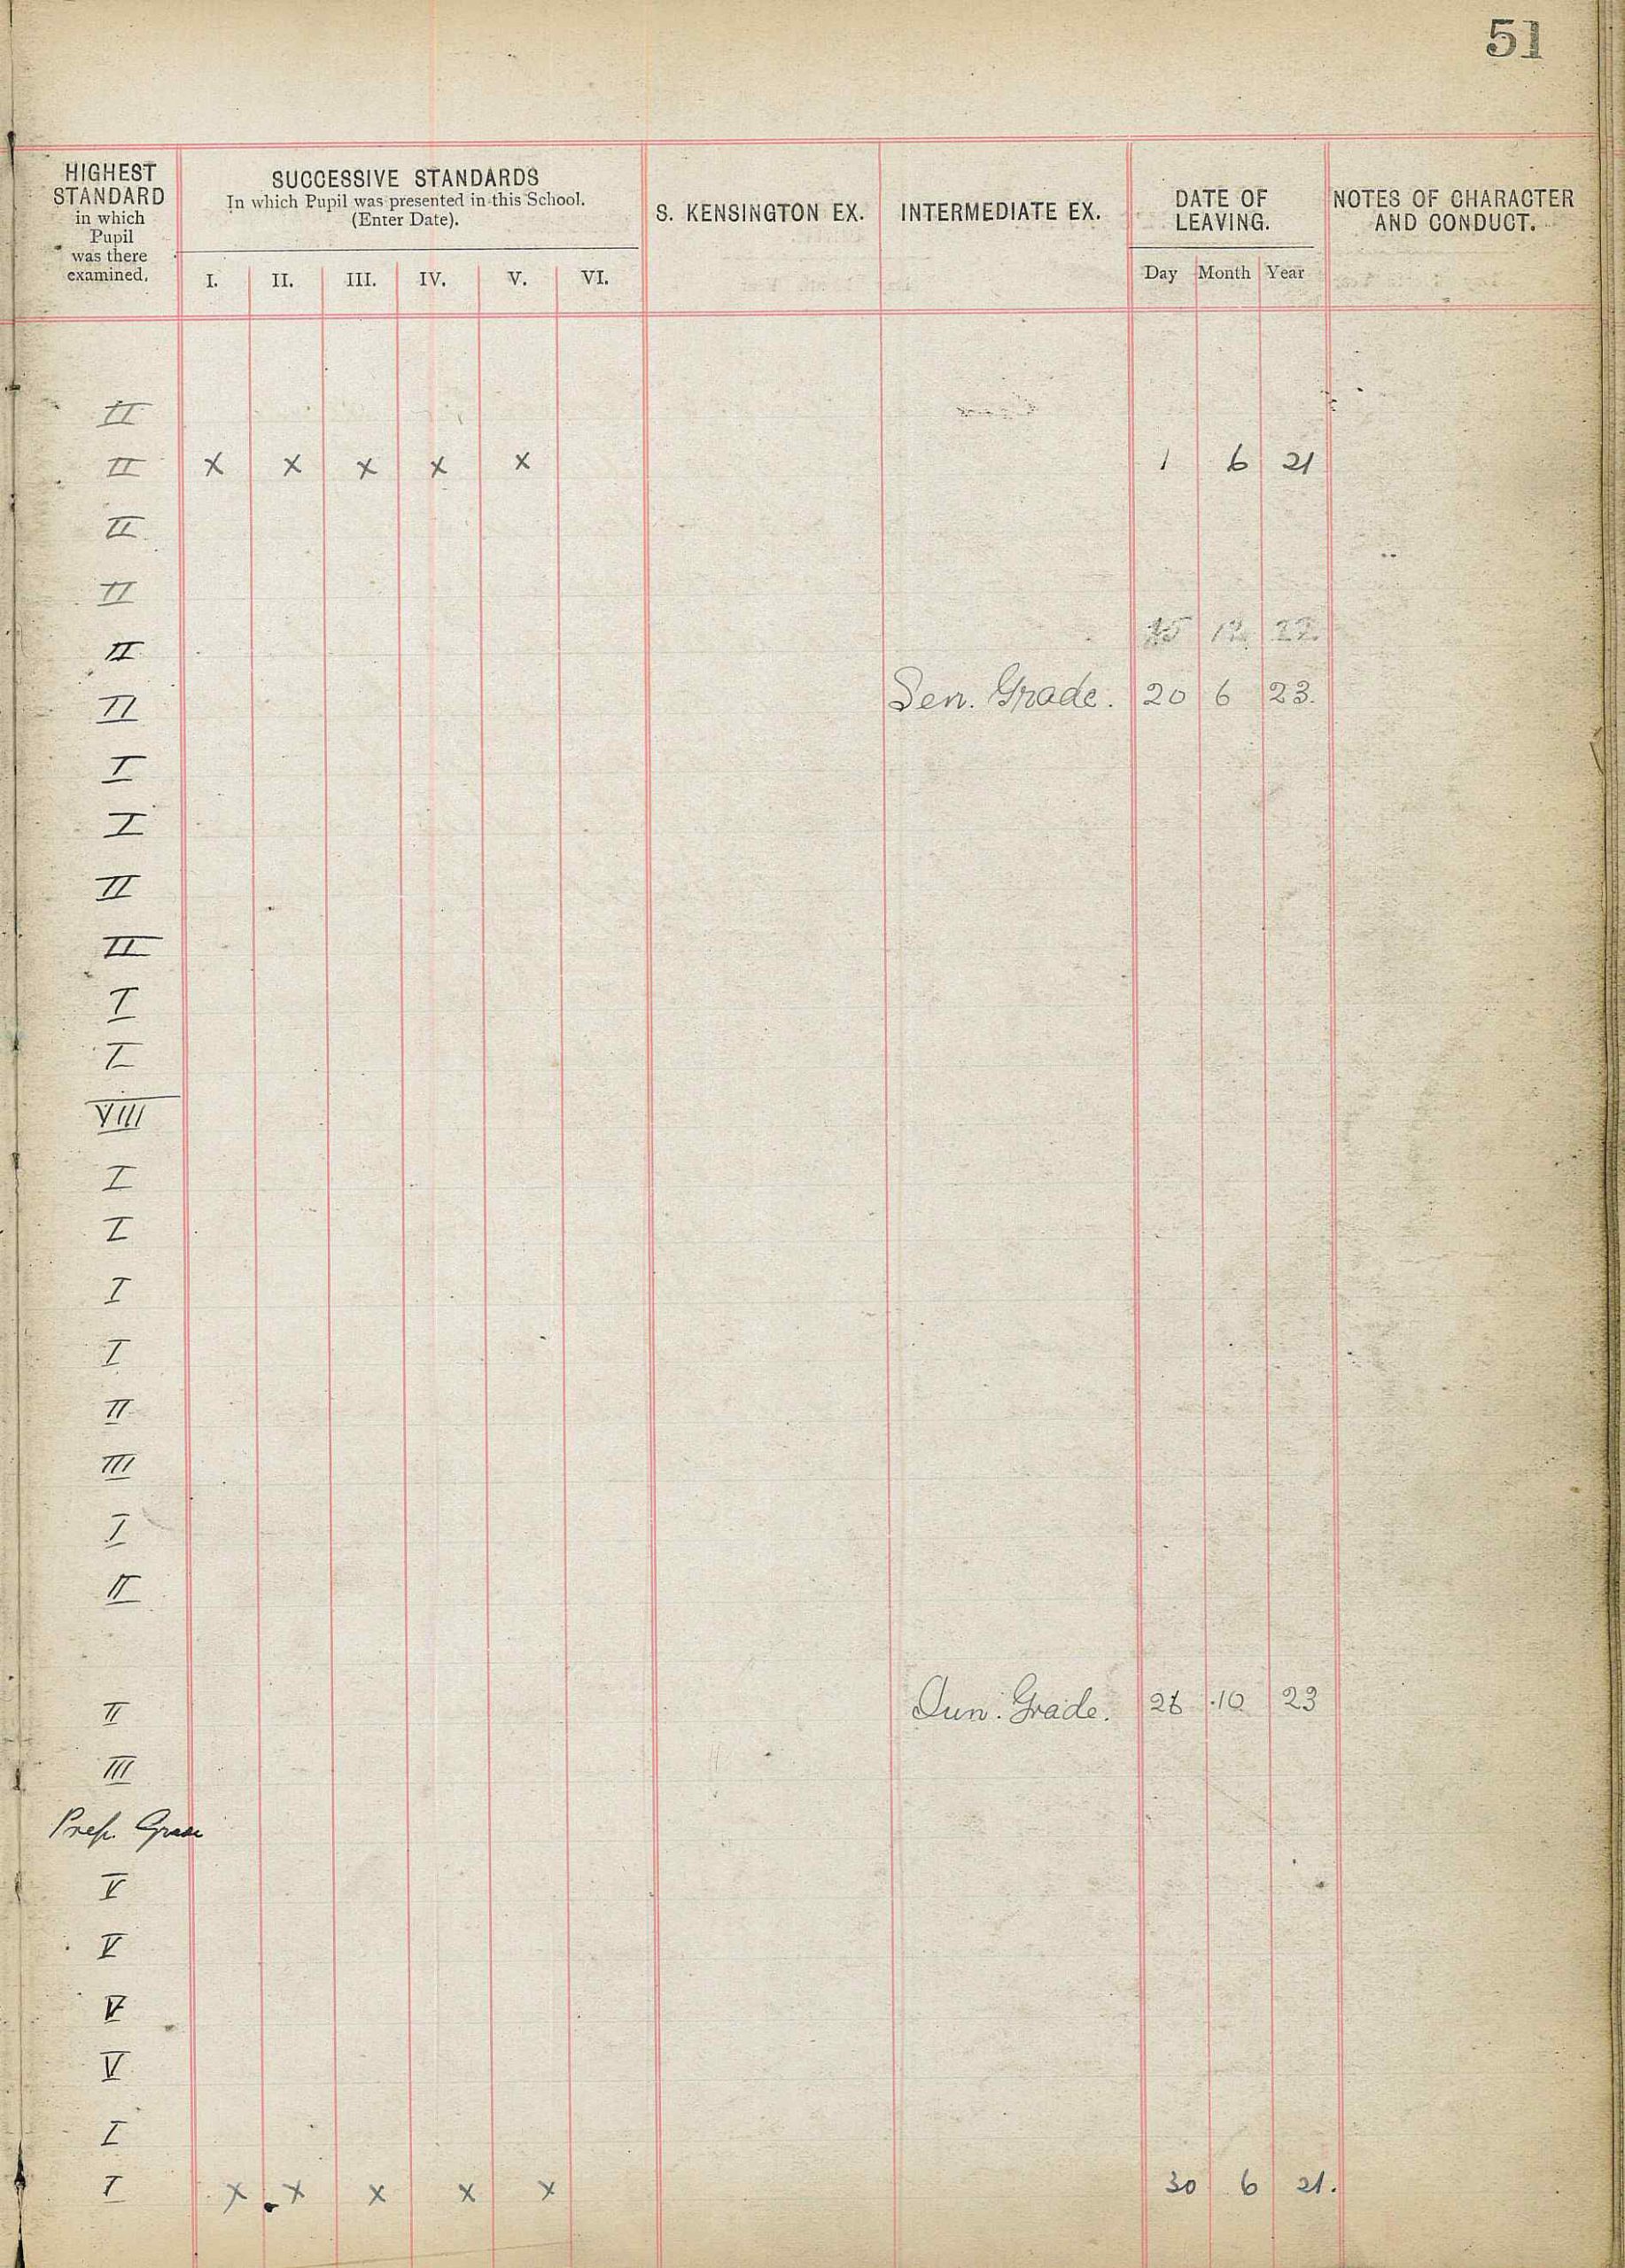 51
HIGHEST STANDARD in which Pupil was there examined.
SUCCESSIVE STANDARDS
In which Pupil was presented in this School.
(Enter Date).
I. II. III. IV. V. VI.
S. KENSINGTON EX.
INTERMEDIATE EX.
DATE OF LEAVING.
Day Month Year
NOTES OF CHARACTER AND CONDUCT.
II
II x x x x x 1 6 21
II
II
II 12 22.
II Sen. Grade. 20 6 23.
I
I
II
II
I
I
VIII
I
I
I
I
II
III
I
II
II Jun. Grade. 10 23
III
Prep. Grade
V
V
V
V
I
I x x x x x 30 6 21.